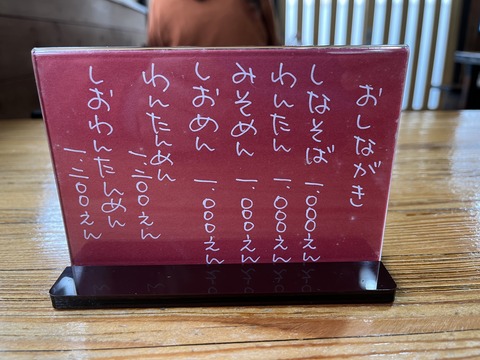 おしながき
しなそば 一.000えん
わんたん 一.000えん
みそめん 一.000えん
しおめん 一.000えん
わんたんめん 一.二00えん
しおわんたんめん 一.二00えん